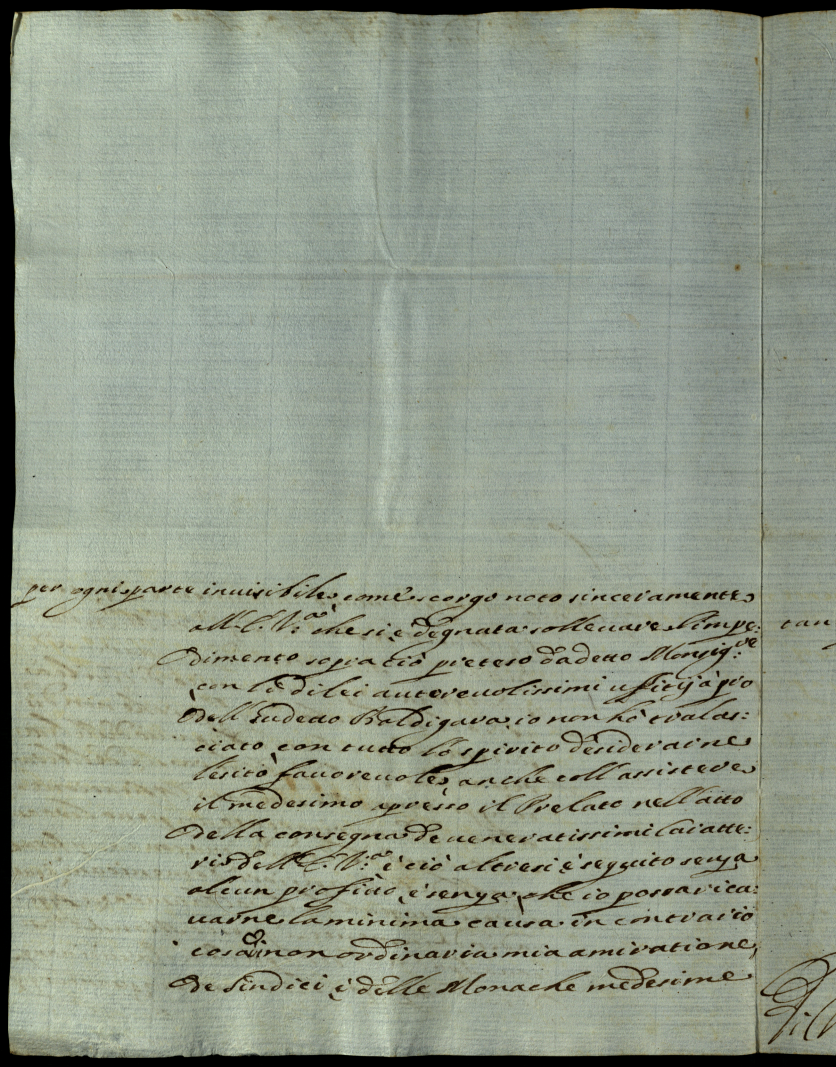 per ogni parte inuisibile, come scorgo noto sinceramente
all'E. V.ª che si è degnata solleuare l'impe:
dimento sopra ciò preteso da detto Monsig.re
con le di lei autoreuolissimi uffitij à pro
dell' Sudetto Baldigara, io non hò tralas:
ciato con tutto lo spirito desiderarne
l'esito fauoreuole, anche coll'assistere
il medesimo apresso il Prelato nell'atto
della consegna de ueneratissimi caratte:
ri dell'E. V.ª è ciò altresi è seguito senza
alcun profitto, è senza che io possa rica:
uarne la minima causa in contrario
cosa di non ordinaria mia amiratione,
de Sindici è delle Monache medesime
tan